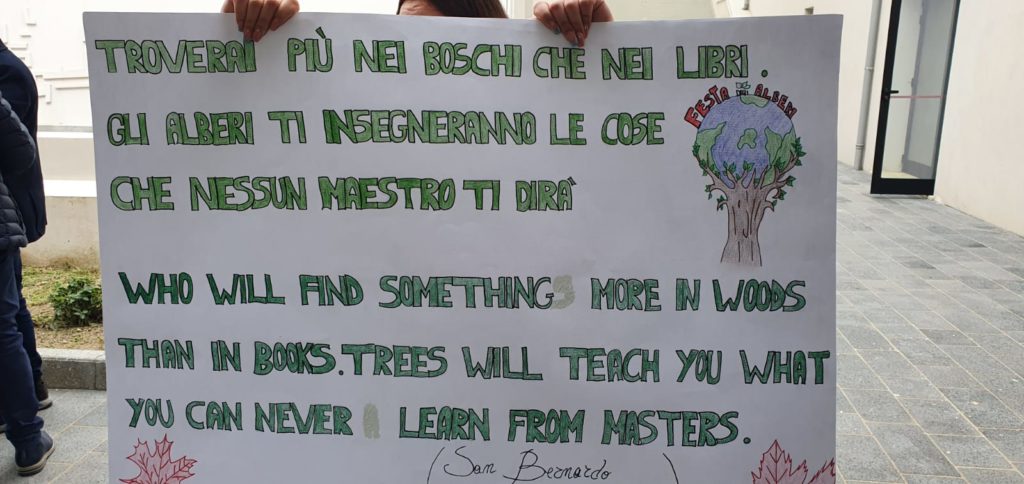 TROVERAI PIÙ NEI BOSCHI CHE NEI LIBRI.
GLI ALBERI TI INSEGNERANNO LE COSE
CHE NESSUN MAESTRO TI DIRÀ
FESTA
ALBERI
WHO WILL FIND SOMETHING MORE IN WOODS
THAN IN BOOKS. TREES WILL TEACH YOU WHAT
YOU CAN NEVER LEARN FROM MASTERS.
(San Bernardo )